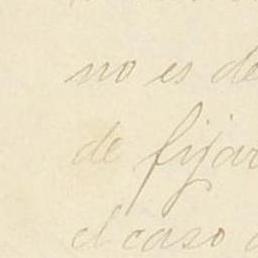 no es de
de fijar
el caso